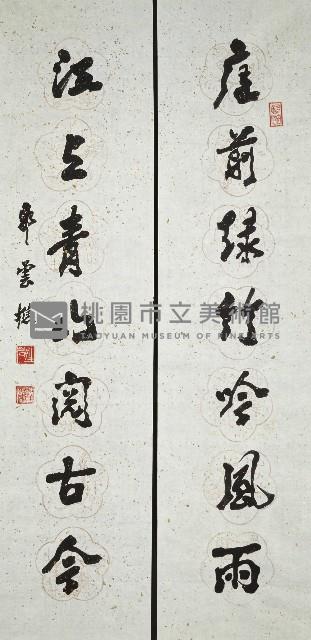 庭前綠樹吟風雨
江上青山閱古今
郭雲樵
桃園市立美術館
TAOYUAN MUSEUM OF FINE ARTS